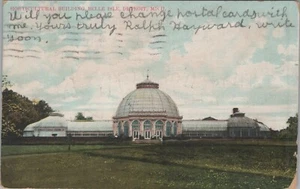 HORTICULTURAL BUILDING, BELLE ISLE, DETROIT, MICH.
Will you please change postal cards with
me, yours truly Ralph Hayward, write
soon.